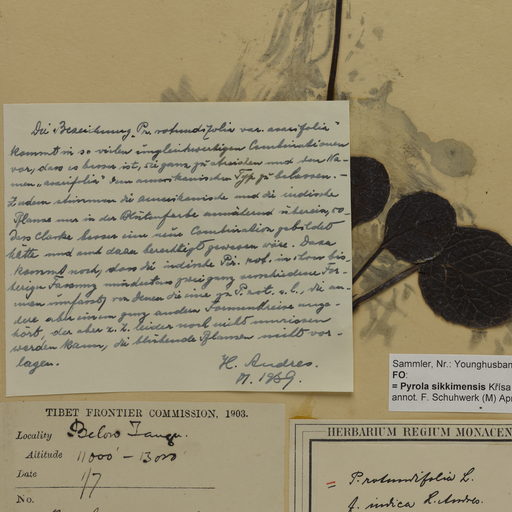 Die Bezeichnung „Pr. rotundifolia var. asarifolia"
kommt in so vielen ungleichwertigen Combinationen
vor, dass es besser ist, sie ganz zu streichen und den Na-
men „asarifolia" dem amerikanischen Typ zu belassen. —
Zudem stimmen die amerikanische und die indische
Pflanze nur in der Blütenfarbe annähernd überein, so-
dass Clarke besser eine neue Combination gebildet
hätte und auch dazu berechtigt gewesen wäre. Dazu
kommt noch, dass die indische Pir. rot. in ihrer bis-
herigen Fassung mindestens zwei ganz verschiedene For-
men umfasst, von denen die eine zu P. rot. s. l., die an-
dere aber einem ganz andern Formenkreise ange-
hört, der aber z. Z. leider noch nicht umrissen
werden kann, die blühende Pflanzen nicht vor-
lagen.
H. Andres.
1939.
TIBET FRONTIER COMMISSION, 1903.
Locality Below Tangu.
Altitude 11000' – 13000
Date 1/7
No.
Sammler, Nr.: Younghusban
FO:
= Pyrola sikkimensis Křísa
annot. F. Schuhwerk (M) Apr
HERBARIUM REGIUM MONACEN
= P. rotundifolia L.
f. indica H. Andres.